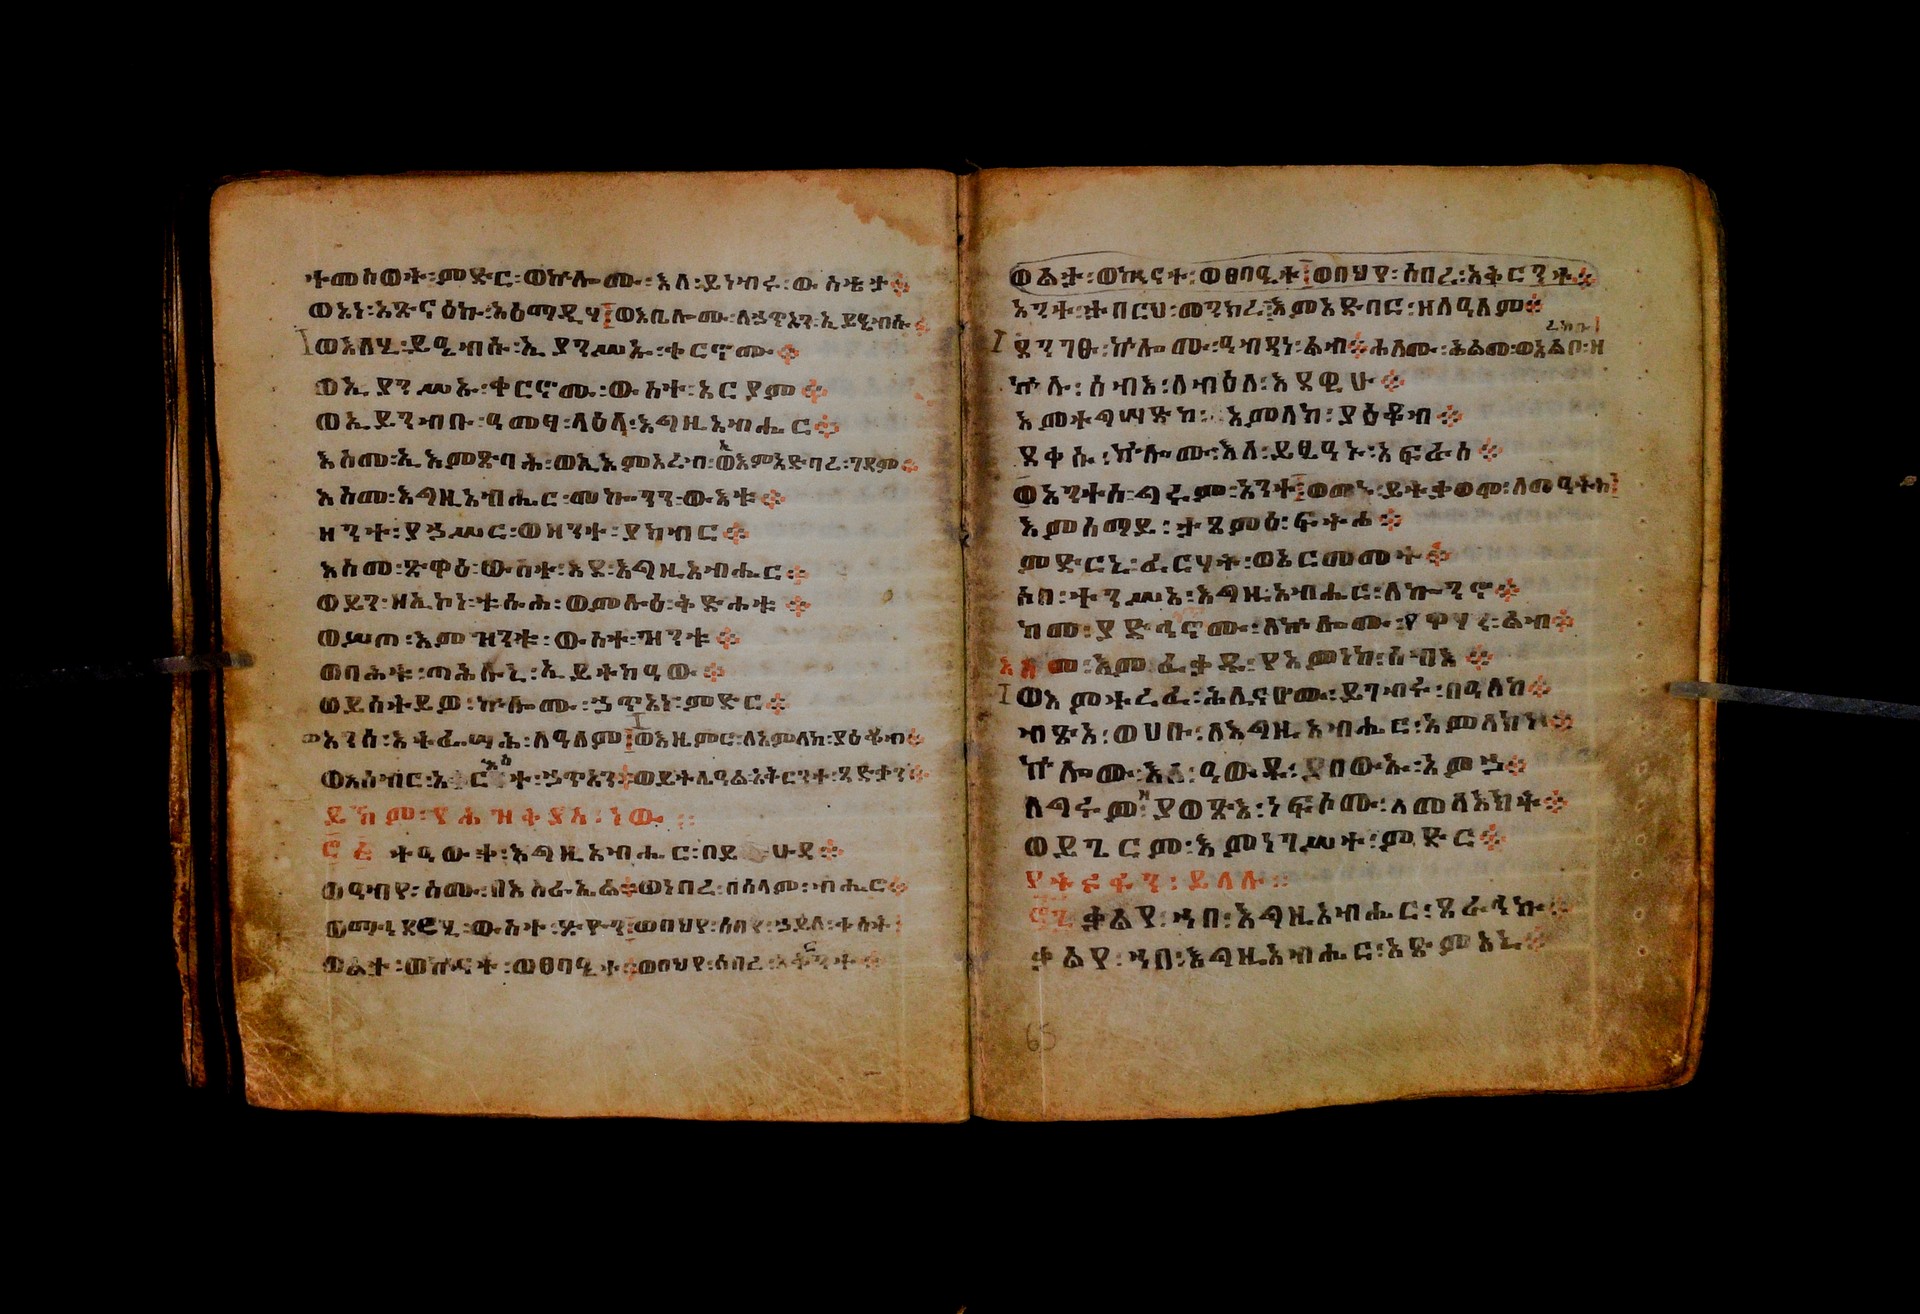 ተመስወት፡ምድር፡ወኵሎሙ፡እለ፡ይነብሩ፡ውስቴታ
ወአነ፡አጽናዕኩ፡አዕማዲሃ፡ወእቤሎሙ፡ለኃጥአን፡ኢይሄብሉ
ወእለሂ፡ይዔብሱ፡ኢያንሥኡ፡ቀርኖሙ
ወኢያንሥኡ፡ቀርኖሙ፡ውስተ፡አርያም
ወኢይንብቡ፡ዓመፃ፡ላዕለ፡እግዚአብሔር
እስመ፡ኢእምጽባሕ፡ወኢእምአረብ፡ወኢእምአድባረ፡ገዳም
እስመ፡እግዚአብሔር፡መኰንን፡ውእቱ
ዘንተ፡ያኃሥር፡ወዘንተ፡ያከብር
እስመ፡ጽዋዕ፡ውስተ፡እደ፡እግዚአብሔር
ወይን፡ዘኢኮነ፡ቱሱሕ፡ወምሉዕ፡ቅድሐቱ
ወሦጠ፡እምዝንቱ፡ውስተ፡ዝንቱ
ወባሕቱ፡ጣሕሉኒ፡ኢይትከዓው
ወይስትይዎ፡ኵሎሙ፡ኃጥአነ፡ምድር
ወአንሰ፡እትፌሣሕ፡ለዓለም፡ወእዜምር፡ለአምላከ፡ያዕቆብ
ወእሰብር፡ኃጥአን፡ወይትሌዓል፡አቅርንተ፡ጻድቃን
ይኽም፡የሕዝቅያስ፡ነው፡፡
፸፭ ትዓውቀ፡እግዚአብሔር፡በይሁዳ
ወዓብየ፡ስሙ፡በእስራኤል፡ወነበረ፡በሰላም፡ብሔር
ውስተ፡ጽዮን፡ወበህየ፡ሰበረ፡ኃይለ፡ቀስት
ወልታ፡ወኵናተ፡ወፀባዒተ፡ወበህየ፡ሰበረ፡አቅርንተ
ወልታ፡ወኵናተ፡ወፀባዒተ፡ወበህየ፡ሰበረ፡አቅርንተ
አንተ፡ታበርህ፡መንክረ፡እምአድባር፡ዘለዓለም
ደንገፁ፡ኵሎሙ፡ዓብዳነ፡ልብ፡ሐለሙ፡ሕልመ፡ወአልቦ፡ዘ
ረከቡ
ኵሉ፡ሰብአ፡ለብዕለ፡እደዊሁ
እምተግሣጽከ፡አምላከ፡ያዕቆብ
ደቀሱ፡ኵሎሙ፡እለ፡ይፄዓኑ፡አፍራሰ
ወአንተሰ፡ግሩም፡አንተ፡ወመኑ፡ይትቃወሞ፡ለመዓትከ
እምሰማይ፡ታፄምዕ፡ፍትሐ
ምድርኒ፡ፈርሃት፡ወአርመመት
ሶበ፡ተንሥአ፡እግዚአብሔር፡ለኰንኖ
ከመ፡ያድኅኖሙ፡ለኵሎሙ፡የዋሃነ፡ልብ
እስመ፡እምፈቃዱ፡የአምነከ፡ሰብእ
ወእምተረፈ፡ሕሊናሆሙ፡ይገብሩ፡በዓለከ
ብጽኡ፡ወሀቡ፡ለእግዚአብሔር፡አምላክነ
ኵሎሙ፡እለ፡ዓውዱ፡ያበውኡ፡አምኃ
ለግሩም፡ዘያወጽእ፡ነፍሶሙ፡ለመላእክት
ወይጌርም፡እምነገሥተ፡ምድር
ያትሮፋን፡ይለሉ፡፡
፸፮ ቃልየ፡ኀበ፡እግዚአብሔር፡ጸራኅኩ
ቃልየ፡ኀበ፡እግዚአብሔር፡አጽምአኒ
65